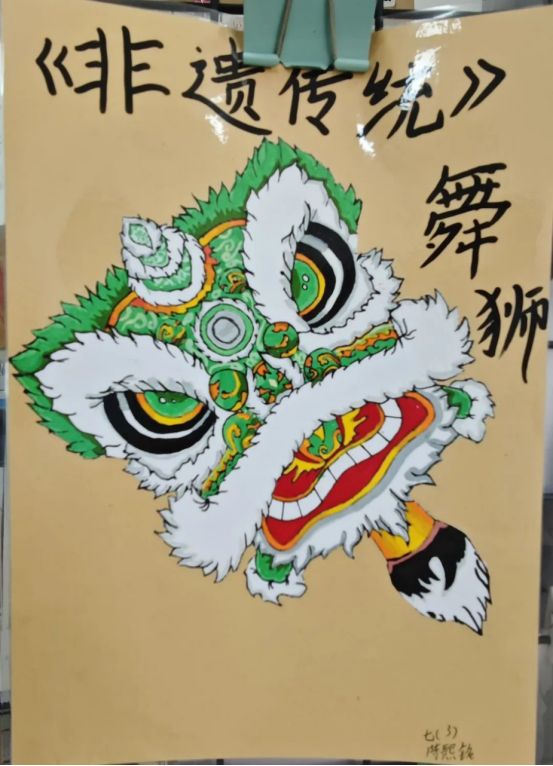 《非遗传统》
舞
狮
七(3)
陈熙铭